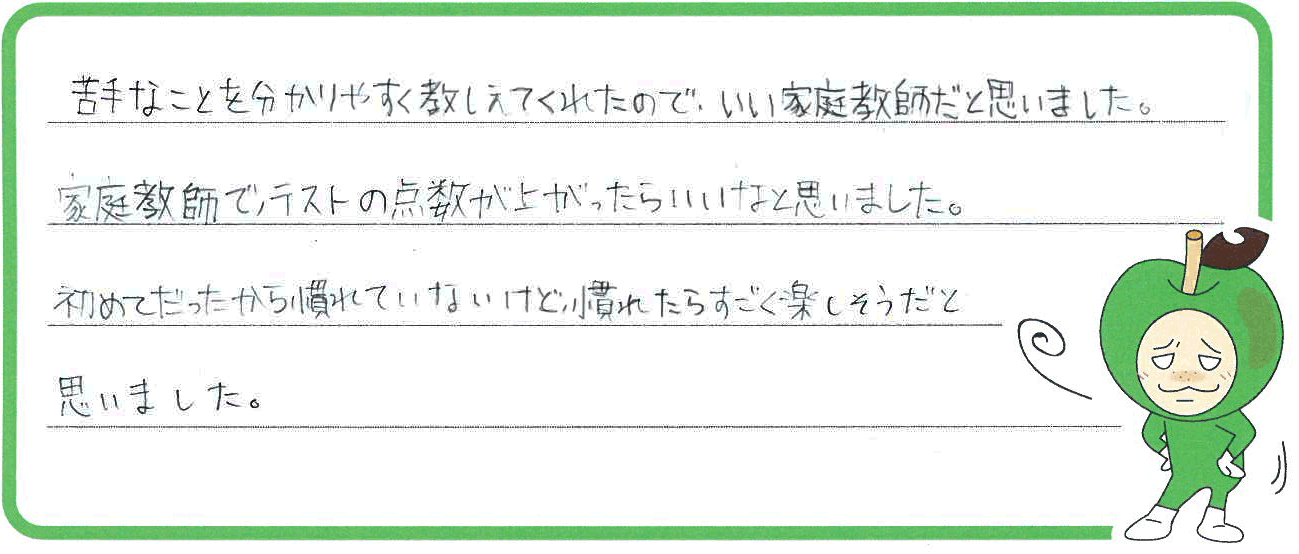 苦手なことを分かりやすく教しえてくれたので、いい家庭教師だと思いました。
家庭教師で、テストの点数が上がったらいいなと思いました。
初めてだったから慣れていないけど、慣れたらすごく楽しそうだと
思いました。